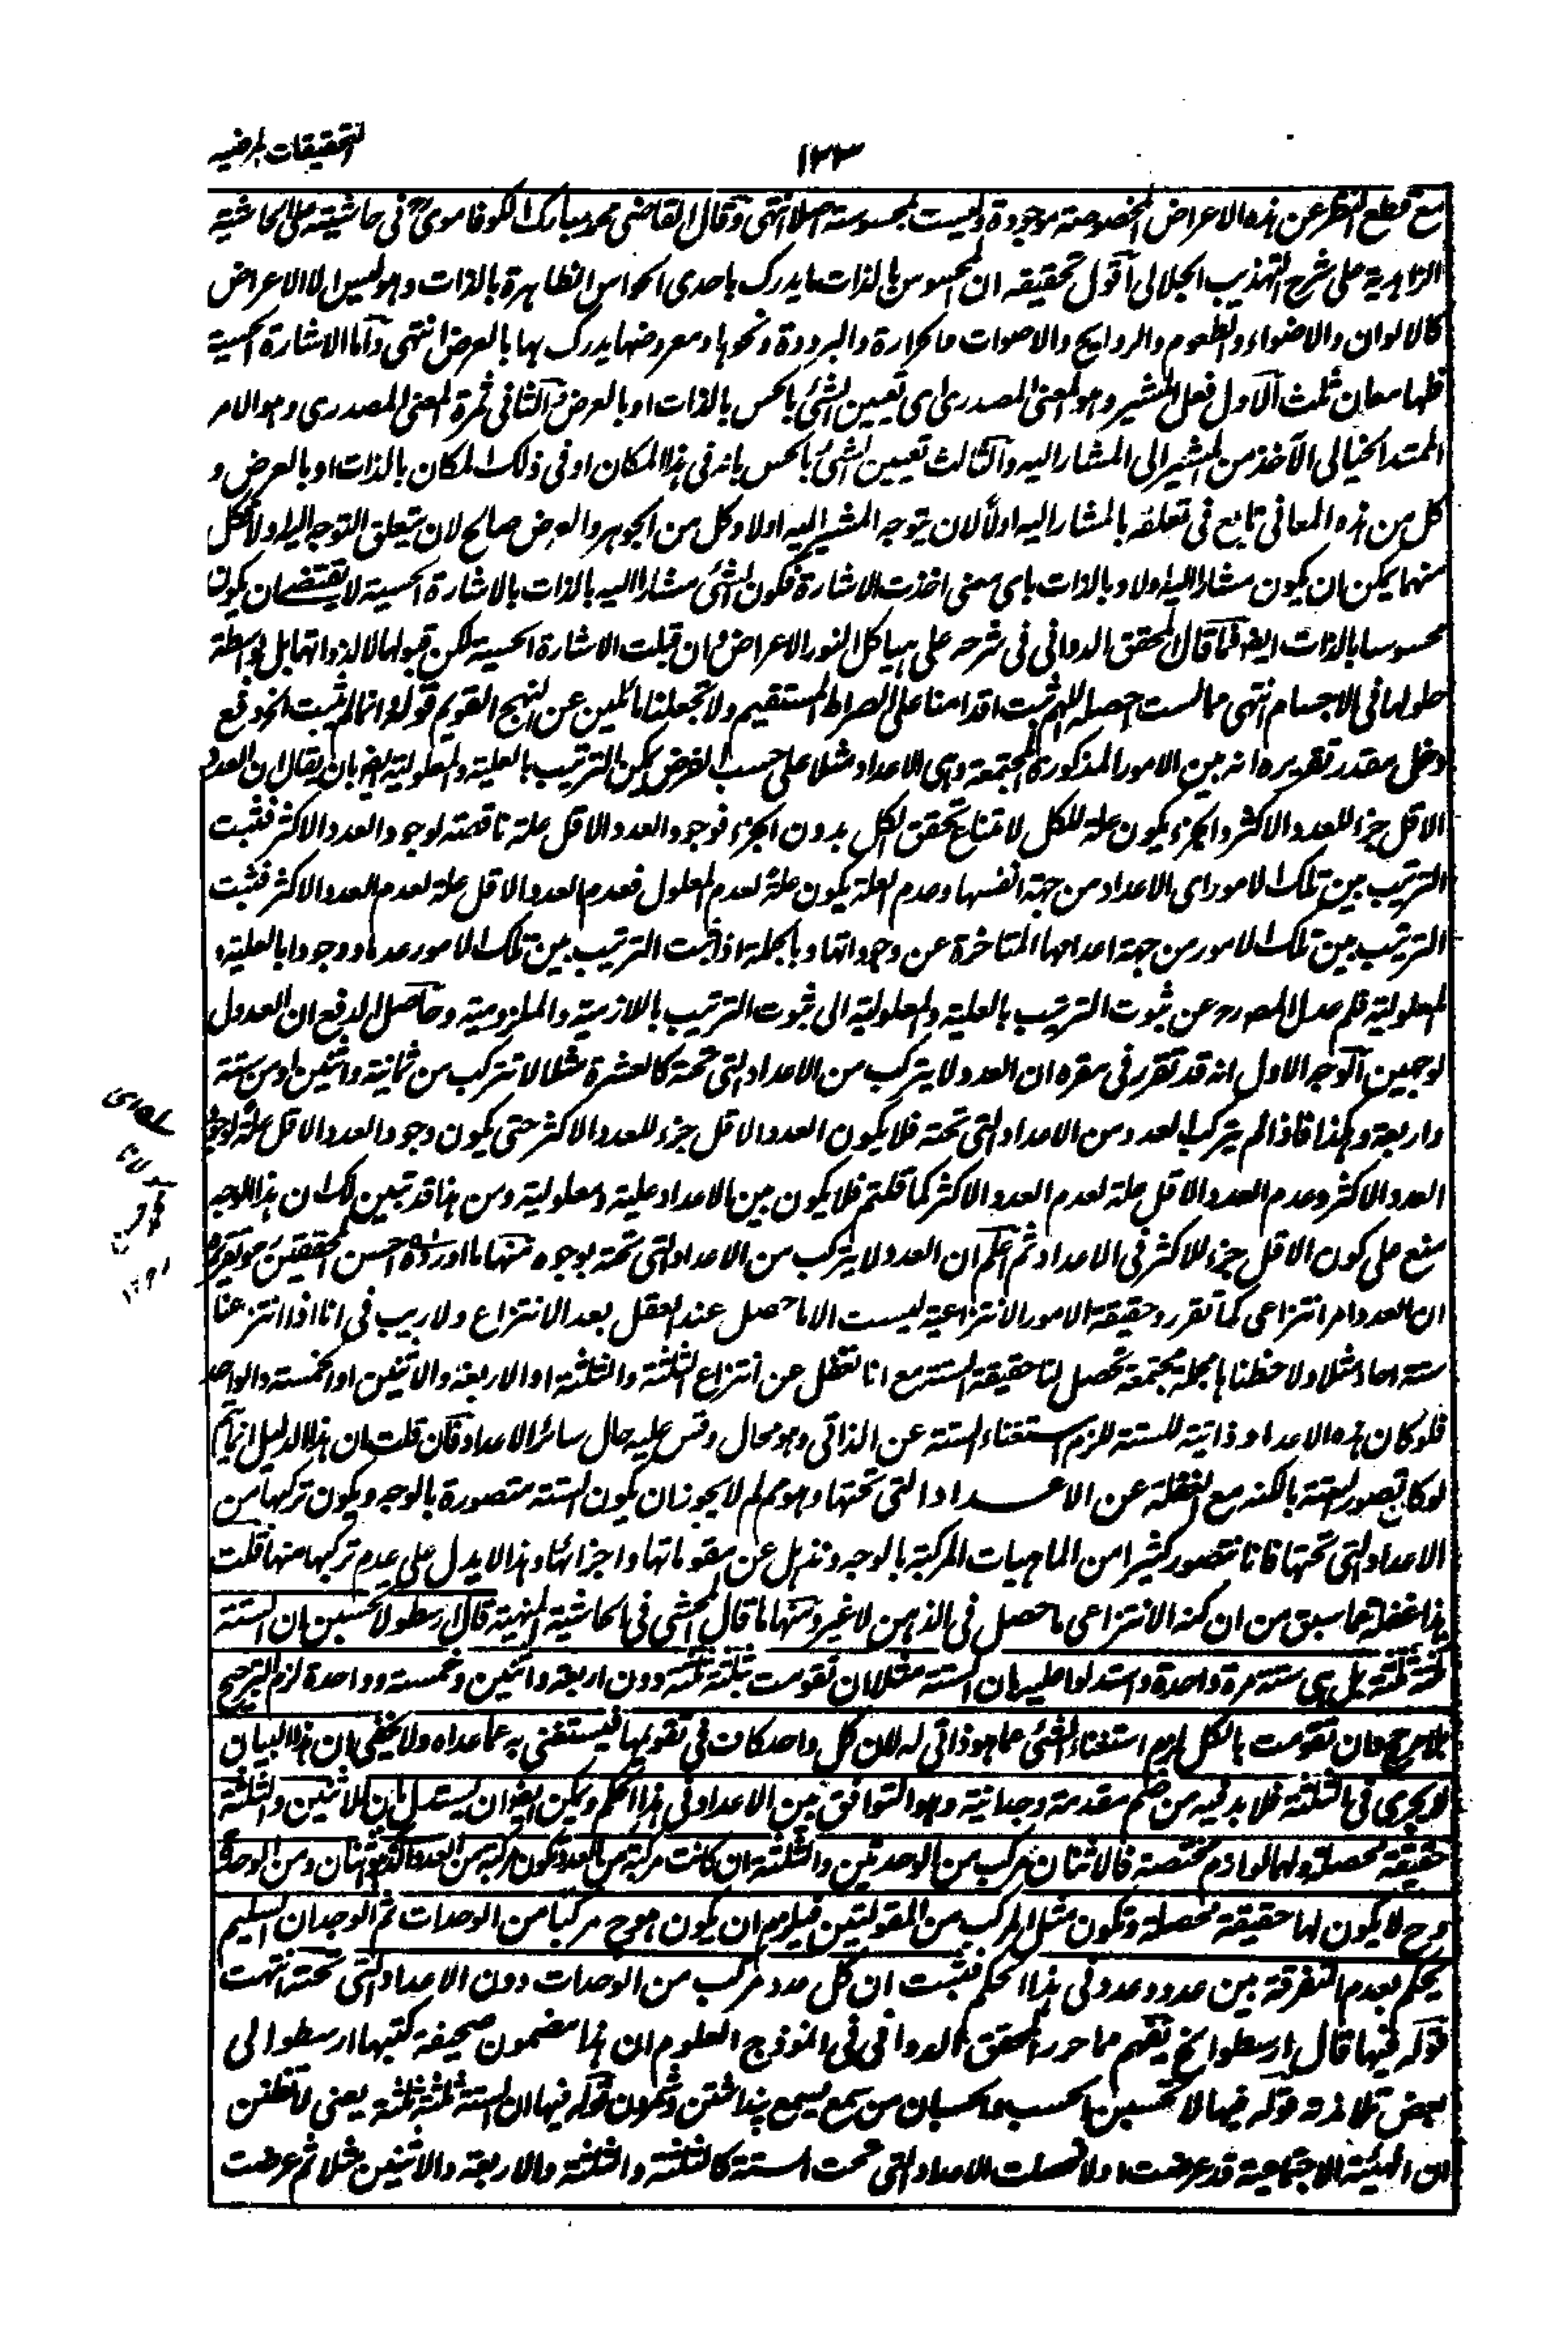 التحقيقات المرضیه
١٣٣
مع قطع النظر عن هذه الاعراض المخصوصة موجودة وليست بمحسوسة اصلا انتهى وقال القاضى محمد مبارك الكوفاموى فى حاشيته على الحاشية
الزاهدية على شرح التهذيب الجلالى اقول تحقيقه ان المحسوس بالذات ما يدرك باحدى الحواس الظاهرة بالذات وهو ليس الا الاعراض
كالالوان والاضواء والطعوم والروايح والاصوات والحرارة والبرودة ونحوها ومعروضها يدرك بها بالعرض انتهى واما الاشارة الحسية
فلها معان ثلث الاول فعل المشير وهو المعنى المصدرى اى تعيين الشئ بالحس بالذات او بالعرض والثانى ثمرة المعنى المصدرى وهو الامر
الممتد الخيالى الآخذ من المشير الى المشار اليه والثالث تعيين الشئ بالحس بانه فى هذا المكان او فى ذلك المكان بالذات او بالعرض و
كل من هذه المعانى تابع فى تعلقه بالمشار اليه اولا لان يتوجه المشير اليه اولا وكل من الجوهر والعرض صالح لان يتعلق التوجه اليه اولا فكل
منهما يمكن ان يكون مشارا اليه اولا وبالذات باى معنى اخذت الاشارة فكون الشئ مشارا اليه بالذات بالاشارة الحسية لا يقتضى ان يكون
محسوسا بالذات ايضا فما قال المحقق الدوانى فى شرحه على هياكل النور الاعراض وان قبلت الاشارة الحسية لكن قبولها لا لذواتها بل بواسطة
حلولها فى الاجسام انتهى مما لست احصله اللهم ثبت اقدامنا على الصراط المستقيم ولا تجعلنا مائلين عن النهج القويم قوله انما لم يثبت الخ دفع
دخل مقدر تقريره انه بين الامور المذكورة المجتمعة وهى الاعداد مثلا على حسب الفرض يمكن الترتيب بالعلية والمعلولية ايضا بان يقال ان العدد
الاقل جزء للعدد الاكثر والجزء يكون علة للكل لامتناع تحقق الكل بدون الجزء فوجود العدد الاقل علة ناقصة لوجود العدد الاكثر فثبت
الترتيب بين تلك الامور اى الاعداد من جهة انفسها وعدم العلة يكون علة لعدم المعلول فعدم العدد الاقل علة لعدم العدد الاكثر فثبت
الترتيب بين تلك الامور من جهة اعدامها المتاخرة عن وجوداتها وبالجملة اذ ثبت الترتيب بين تلك الامور عدما ووجودا بالعلية و
المعلولية فلم عدل المصرح عن ثبوت الترتيب بالعلية والمعلولية الى ثبوت الترتيب باللازمية والملزومية وحاصل الدفع ان العدول
لوجهين الوجه الاول انه قد تقرر فى مقره ان العدد لا يتركب من الاعداد التى تحته كالعشرة مثلا لا تتركب من ثمانية واثنين او من ستة
واربعة وهكذا فاذا لم يتركب العدد من الاعداد التى تحته فلا يكون العدد الاقل جزء للعدد الاكثر حتى يكون وجود العدد الاقل علة لوجود
العدد الاكثر وعدم العدد الاقل علة لعدم العدد الاكثر كما قلتم فلا يكون بين الاعداد علية ومعلولية ومن هنا قد تبين لك ان هذا الوجه
منع على كون الاقل جزء للاكثر فى الاعداد ثم اعلم ان العدد لا يتركب من الاعداد التى تحته بوجوه منها ما اورده احسن المحققين هو تقريره
ان العدد امر انتزاعى كما تقرر وحقيقة الامور الانتزاعية ليست الا ما حصل عند العقل بعد الانتزاع ولا ريب فى انا اذا انتزعنا
ستة احاد مثلا ولاحظناها مجملة مجتمعة تحصل لنا حقيقة الستة مع انا نغفل عن انتزاع الثلثة والثلثة او الاربعة والاثنين او الخمسة والواحد
فلو كان هذه الاعداد ذاتية للستة للزم استغناء الستة عن الذاتى وهو محال وقس عليه حال سائر الاعداد فان قلت ان هذا الدليل انما يتم
لو كان تصور الستة بالكنه مع الغفلة عن الاعداد التى تحتها وهو مم لم لا يجوز ان يكون الستة متصورة بالوجه ويكون تركبها من
الاعداد التى تحتها فانا نتصور كثيرا من الماهيات المركبة بالوجه ونذهل عن مقوماتها واجزائها وهذا لا يدل على عدم تركبها منها قلت
هذا غفلة عما سبق من ان كنه الانتزاعى ما حصل فى الذهن لا غير ومنها ما قال المحشى فى الحاشية المنهية قال ارسطو لا تحسبن ان الستة
ثلثة ثلثة بل هى ستة مرة واحدة واستدلوا عليه بان الستة مثلا ان تقومت بثلثة ثلثة دون اربعة واثنين وخمسة وواحدة لزم الترجيح
بلا مرجح وان تقومت بالكل لزم استغناء الشئ عما هو ذاتى له لان كل واحد كاف فى تقويمها فيستغنى به عما عداه ولا يخفى ان هذا البيان
لا يجرى فى الثلثة فلا بد فيه من ضم مقدمة وجدانية وهو التوافق بين الاعداد فى هذا الحكم ويمكن ايضا ان يستدل بان للاثنين والثلثة
حقيقة محصلة ولهما لوازم مختصة فالاثنان مركب من الوحدتين والثلثة ان كانت مركبة من العدد تكون مركبة من العدد الذى هو اثنان ومن الوحدة
وح لا يكون لها حقيقة محصلة وتكون مثل المركب من المقولتين فيلزم ان يكون هو ح مركبا من الوحدات ثم الوجدان السليم
يحكم بعدم التفرقة بين عدد وعدد فى هذا الحكم فثبت ان كل عدد مركب من الوحدات دون الاعداد التى تحته انتهت
قوله فيها قال ارسطو الخ يفهم مما حرر المحقق الدوانى فى انموذج العلوم ان هذا مضمون صحيفة كتبها ارسطو الى
بعض تلامذته قوله فيها لا تحسبن الحسب والحسبان من سمع يسمع پنداشتن وشمردن قوله فيها ان الستة ثلثة ثلثة يعنى لا تظنن
ان الهيئة الاجتماعية قد عرضت اولا لوحدات الاعداد التى تحت الستة كالثلثة والثلثة والاربعة والاثنين مثلا ثم عرضت